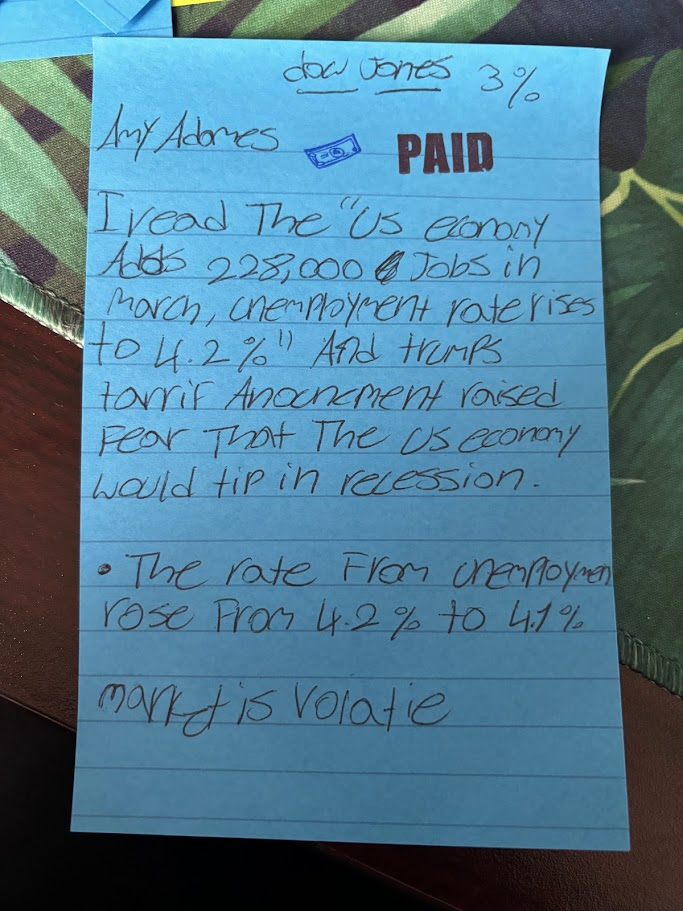 dow Jones 3%
Amy Adomes PAID
I read The "US economy
Adds 228,000 Jobs in
march, unemployment rate rises
to 4.2%" And trumps
tarrif Anouncment raised
Fear That The US economy
would tip in recession.
• The rate From unemploymen
rose From 4.2% to 4.1%
market is Volatie